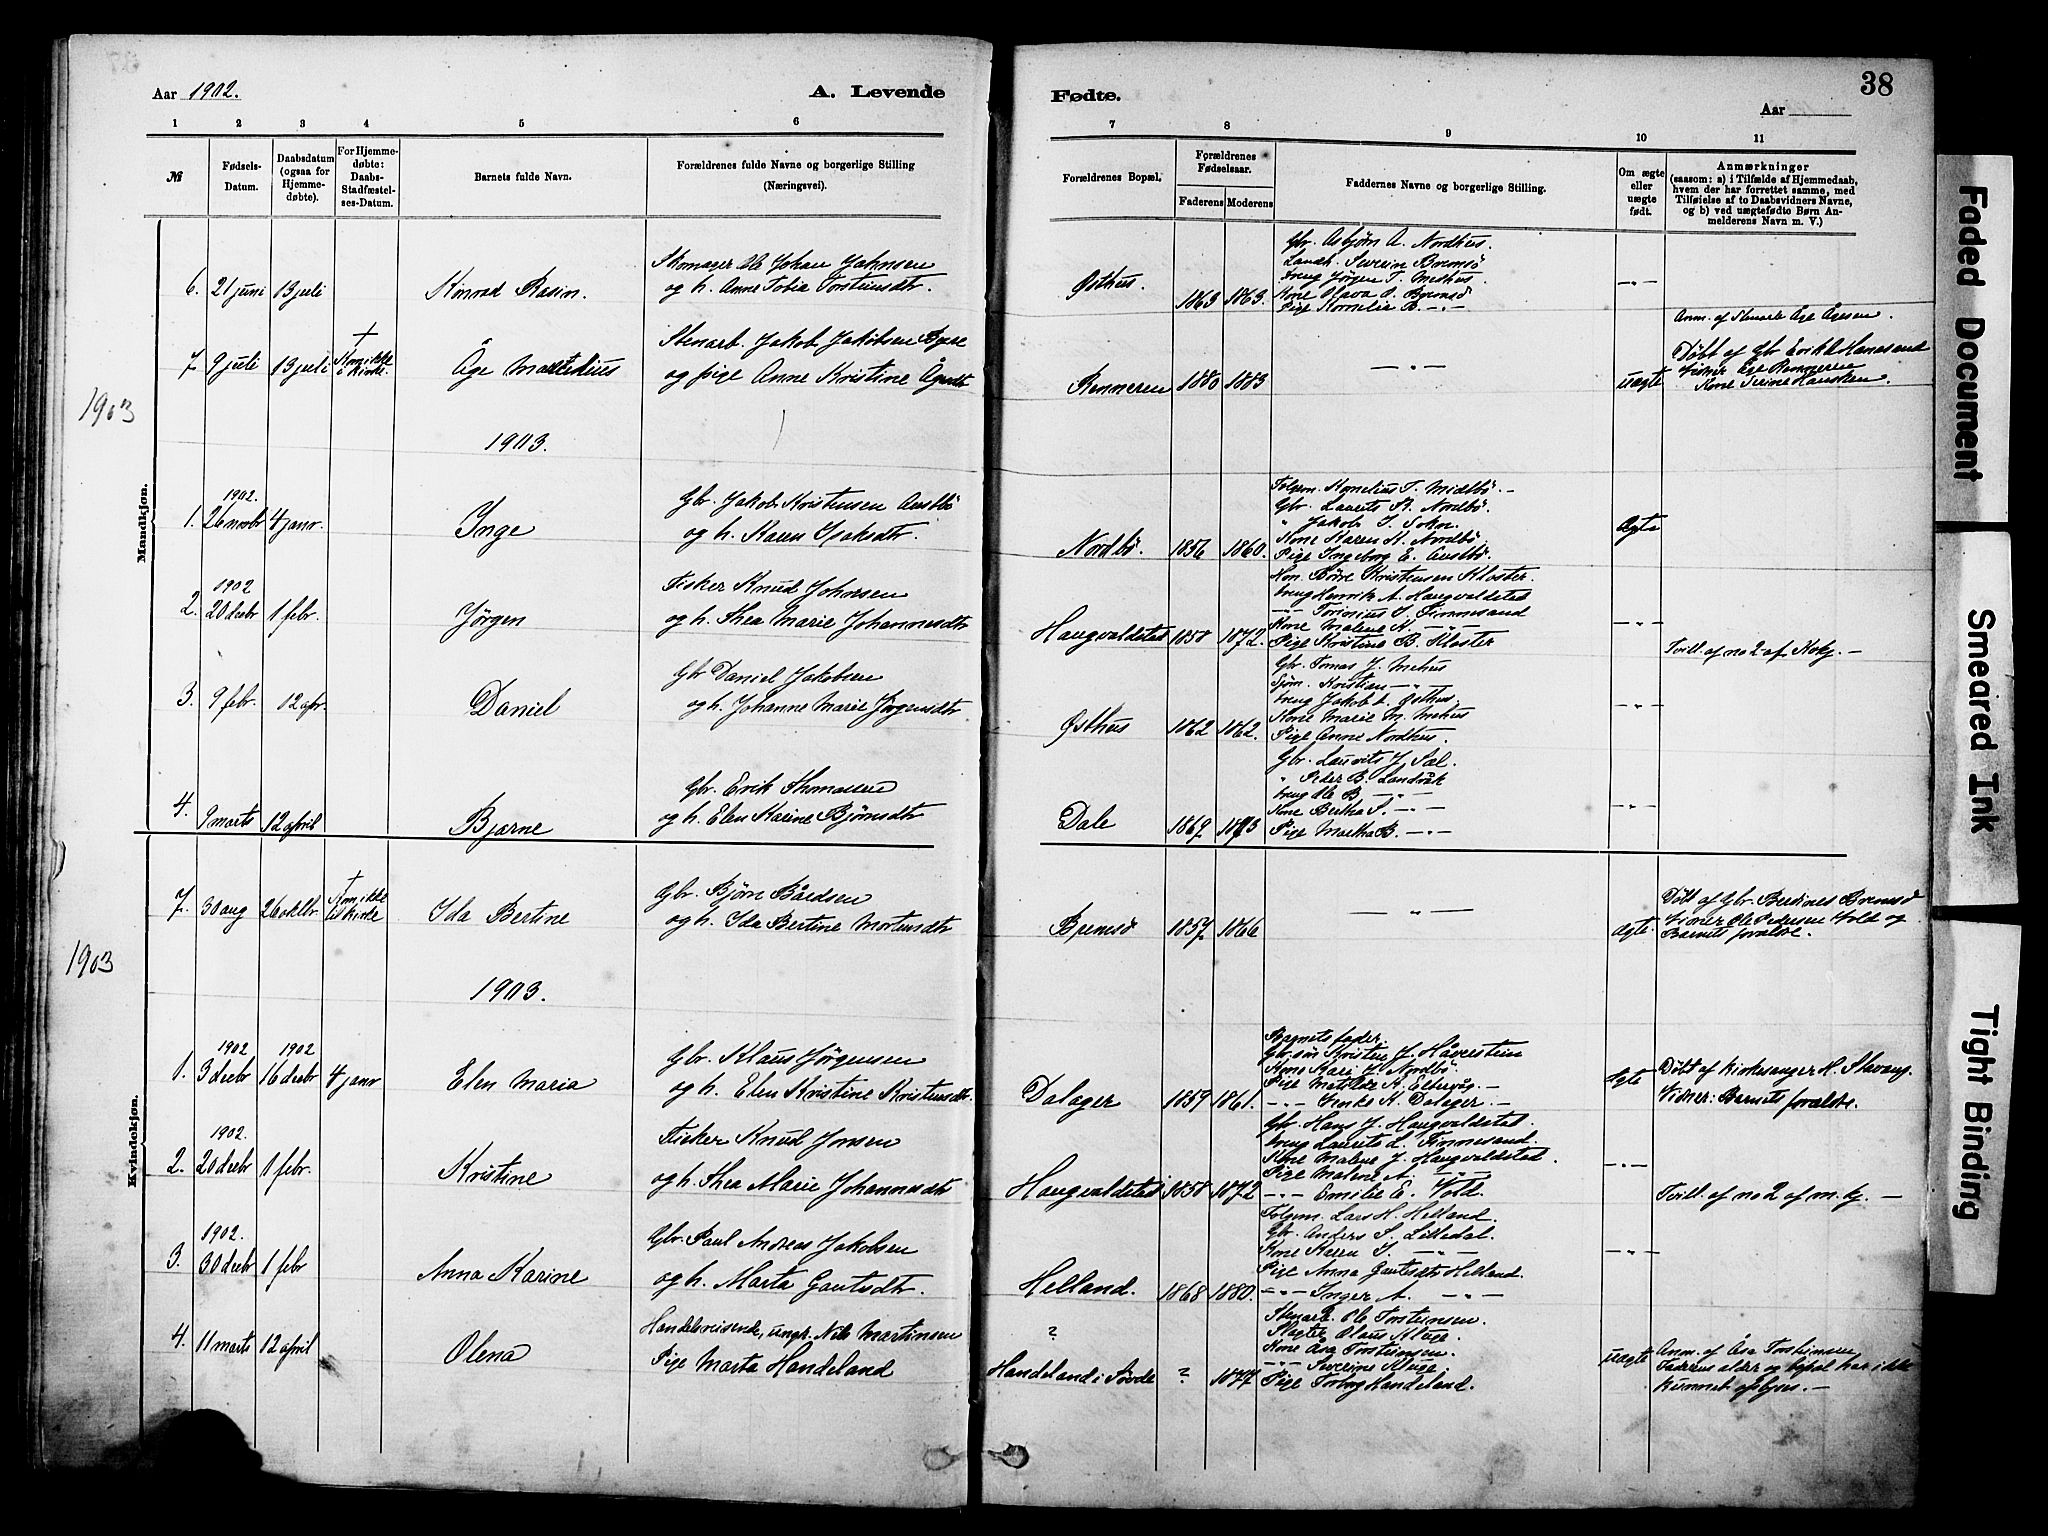 38
Aar 1902.
A. Levende
Fødte.
Aar
1 2 3 4 5 6
7 8 9 10 11
№
Fødsels-
Datum.
Daabsdatum
(ogsaa for
Hjemme-
døbte).
For Hjemme-
døbte:
Daabs-
Stadfæstel-
ses-Datum.
Barnets fulde Navn.
Forældrenes fulde Navne og borgerlige Stilling
(Næringsvei).
Forældrenes Bopæl.
Forældrenes
Fødselsaar.
Faderens Moderens
Faddernes Navne og borgerlige Stilling.
Om ægte
eller
uægte
født.
Anmærkninger
(saasom: a) i Tilfælde af Hjemmedaab,
hvem der har forrettet samme, med
Tilføielse af to Daabsvidners Navne,
og b) ved uægtefødte Børn An-
melderens Navn m. V.)
Mandkjøn.
6. 21 juni 13 juli
Konrad Rasin.
Skomager Ole Johan Johnsen
og h. Anne Tobia Torsteinsdtr.
Østhus. 1863 1863.
Gbr. Asbjørn A. Nordhus.
Landh. Severin Bremsø
Ung Jørgen T. Mehus.
Kone Olava O. Bremsø
Pige Kornelia B. -"-
-"-
7. 9 juli 13 juli
† Kom ikke
i kirke.
Åge Martelius
Stenarb. Jakob Jakobsen
og pige Anne Kristine Ågesdtr
Renneren 1880 1883
- " -
uægte
Anm. af Stenarb. Åge Ågesen.
Døbt af Gbr Erik Hanasand
Vidner Åge Renneren
Kone Serine Hausken.
1903
1903.
1. 1902.
26 novbr 4 janr.
Inge
Gbr. Jakob Kristensen Austbø
og h. Karen Isaksdtr.
Nordbø. 1856 1860.
Folgem. Kornelius T. Midtbø. -
Gbr. Laurits K. Nordbø.
" Jakob I. Sokn.
Kone Karen K. Nordbø.
Pige Ingeborg E. Austbø.
Ægte
2. 1902
20 decbr 1 febr.
Jørgen
Fisker Knud Johnsen
og h. Thea Marie Johannesdtr
Haugvaldstad 1858 1872.
Børe Kristensen Kloster.
Ung Henrik A. Haugvaldstad
-"- Torinius J. Finnesand
Kone Malene K. -"-
Pige Kristine B. Kloster
-"-
Tvill. af no 2 af Kvkj. -
3. 9 febr. 12 apr.
Daniel
Gbr Daniel Jakobsen
og h. Johanne Marie Jørgensdtr
Østhus 1862 1862.
Gbr. Tomas J. Mehus
Sjøm. Kristian -"-
Ung Jakob A. Østhus
Kone Marie M. Mehus
Pige Anne Nordhus.
-"-
4. 9 marts 12 april
Bjarne
Gbr. Erik Thomassen
og h. Elen Karine Bjørnsdtr
Dale 1867 1873
Gbr. Lauvits J. Sæl.
" Peder B. Landråk
Ung Ole B. -"-
Kone Bertha S. -"-
Pige Martha B. -"-
-"-
Kvindekjøn.
7. 30 aug 26 oktbr
† Kom ikke
til kirke
Ida Bertine
Gbr. Bjørn Bårdsen
og h. Ida Bertine Mortensdtr
Bremsø 1857 1866
- " -
Ægte.
Døbt af Gbr. Berdines Bremsø
Vidner Ole Pedersen Vold og
Barnets forældre.
1903
1903.
1. 1902
3 decbr 1902
16 decbr 4 janr
Elen Maria
Gbr. Klaus Jørgensen
og h. Elen Kristine Kristensdtr.
Dalager 1859 1861.
Barnets fader.
Gbr. søn Kristen J. Håverstein
Kone Kari J. Nordbø.
Pige Matilde K. Eltervåg. -
-"- Jenke K. Dalager. -
Ægte
Døbt af Kirkesanger H. Stavang.
Vidner: Barnets forældre.
2. 1902.
20 decbr 1 febr.
Kristine
Fisker Knud Jonsen
og h. Thea Marie Johannesdtr
Haugvaldstad 1858 1872
Gbr. Hans J. Haugvaldstad
Ung Laurits L. Finnesand.
Kone Malene J. Haugvaldstad.
Pige Malene A. -"-
-"- Emilie E. Vold.
-"-
Tvill. af no 2 af m. kj. -
3. 1902.
30 decbr 1 febr
Anna Karine
Gbr. Paul Andreas Jakobsen
og h. Marta Gautesdtr.
Helland. 1868 1880.
Folgem. Lars H. Helland.
Gbr. Anders S. Lilledal.
Kone Karen I. -"-
Pige Anna Gautesdtr Helland.
-"- Inger A. -"-
-"-
4. 11 marts 12 april
Olena
Handelsreisende, ungk. Nils Martinsen
Pige Marta Handeland
?
Handeland i Søvde ? 1877
Stenarb. Ole Torsteinsen.
Slagter Olaus Kluge.
Kone Åsa Torsteinsen.
-"- Severine Kluge.
Pige Torborg Handeland.
uægte
Anm. af Åsa Torsteinsen
Faderens alder og bopæl har ikke
kunnet oplyses. -
Faded Document
Smeared Ink
Tight Binding